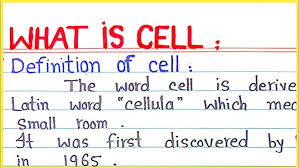 WHAT IS CELL :
Definition of cell :
The word cell is derive
Latin word "cellula" which mea
Small room .
It was first discovered by
in 1965 .